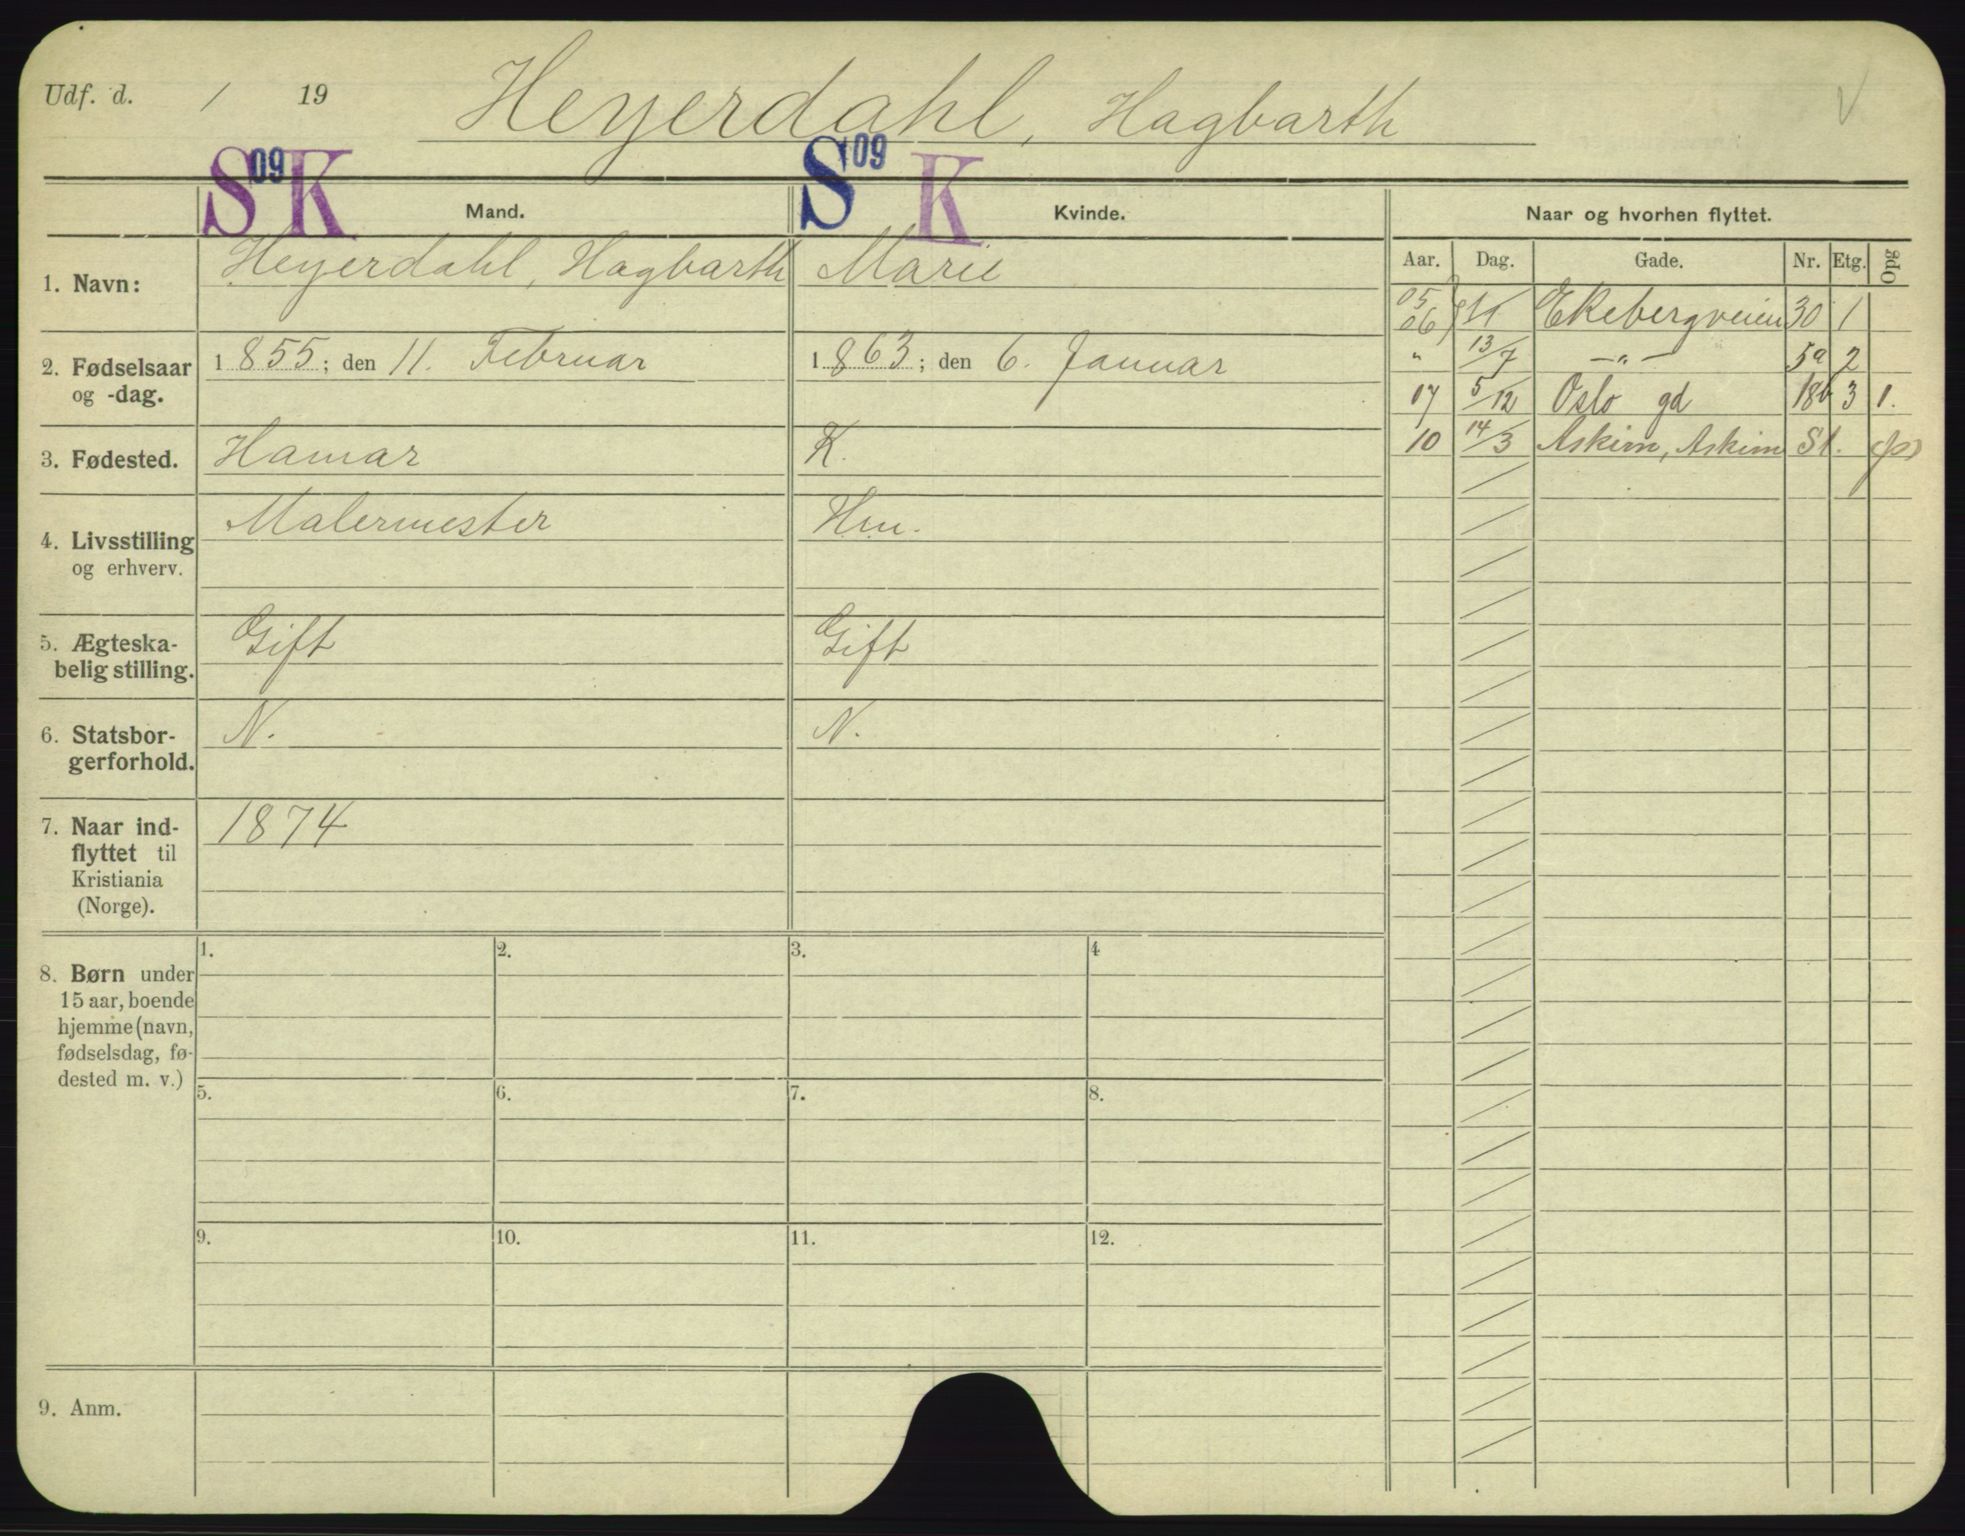 Udf. d. / 19
Heyerdahl, Hagbarth
S 09 K
S 09 K
Mand.
Kvinde.
Naar og hvorhen flyttet.
Aar. Dag. Gade. Nr. Etg. Opg
1. Navn:
Heyerdahl, Hagbarth
Marie
2. Fødselsaar
og -dag.
1855; den 11. Februar
1863; den 6. Januar
3. Fødested.
Hamar
K.
4. Livsstilling
og erhverv.
Malermester
Hru.
5. Ægteska-
belig stilling.
Gift
Gift
6. Statsbor-
gerforhold.
N.
N.
7. Naar ind-
flyttet til
Kristiania
(Norge).
1874
8. Børn under
15 aar, boende
hjemme (navn,
fødselsdag, fø-
dested m. v.)
1. 2. 3. 4
5. 6. 7. 8.
9. 10. 11. 12.
9. Anm.
05
06 Ekebergveien 30 1
" 13/7 —"— 5a 2
07 5/12 Oslo gd 18b 3 1.
10 14/3 Askim, Askim St.